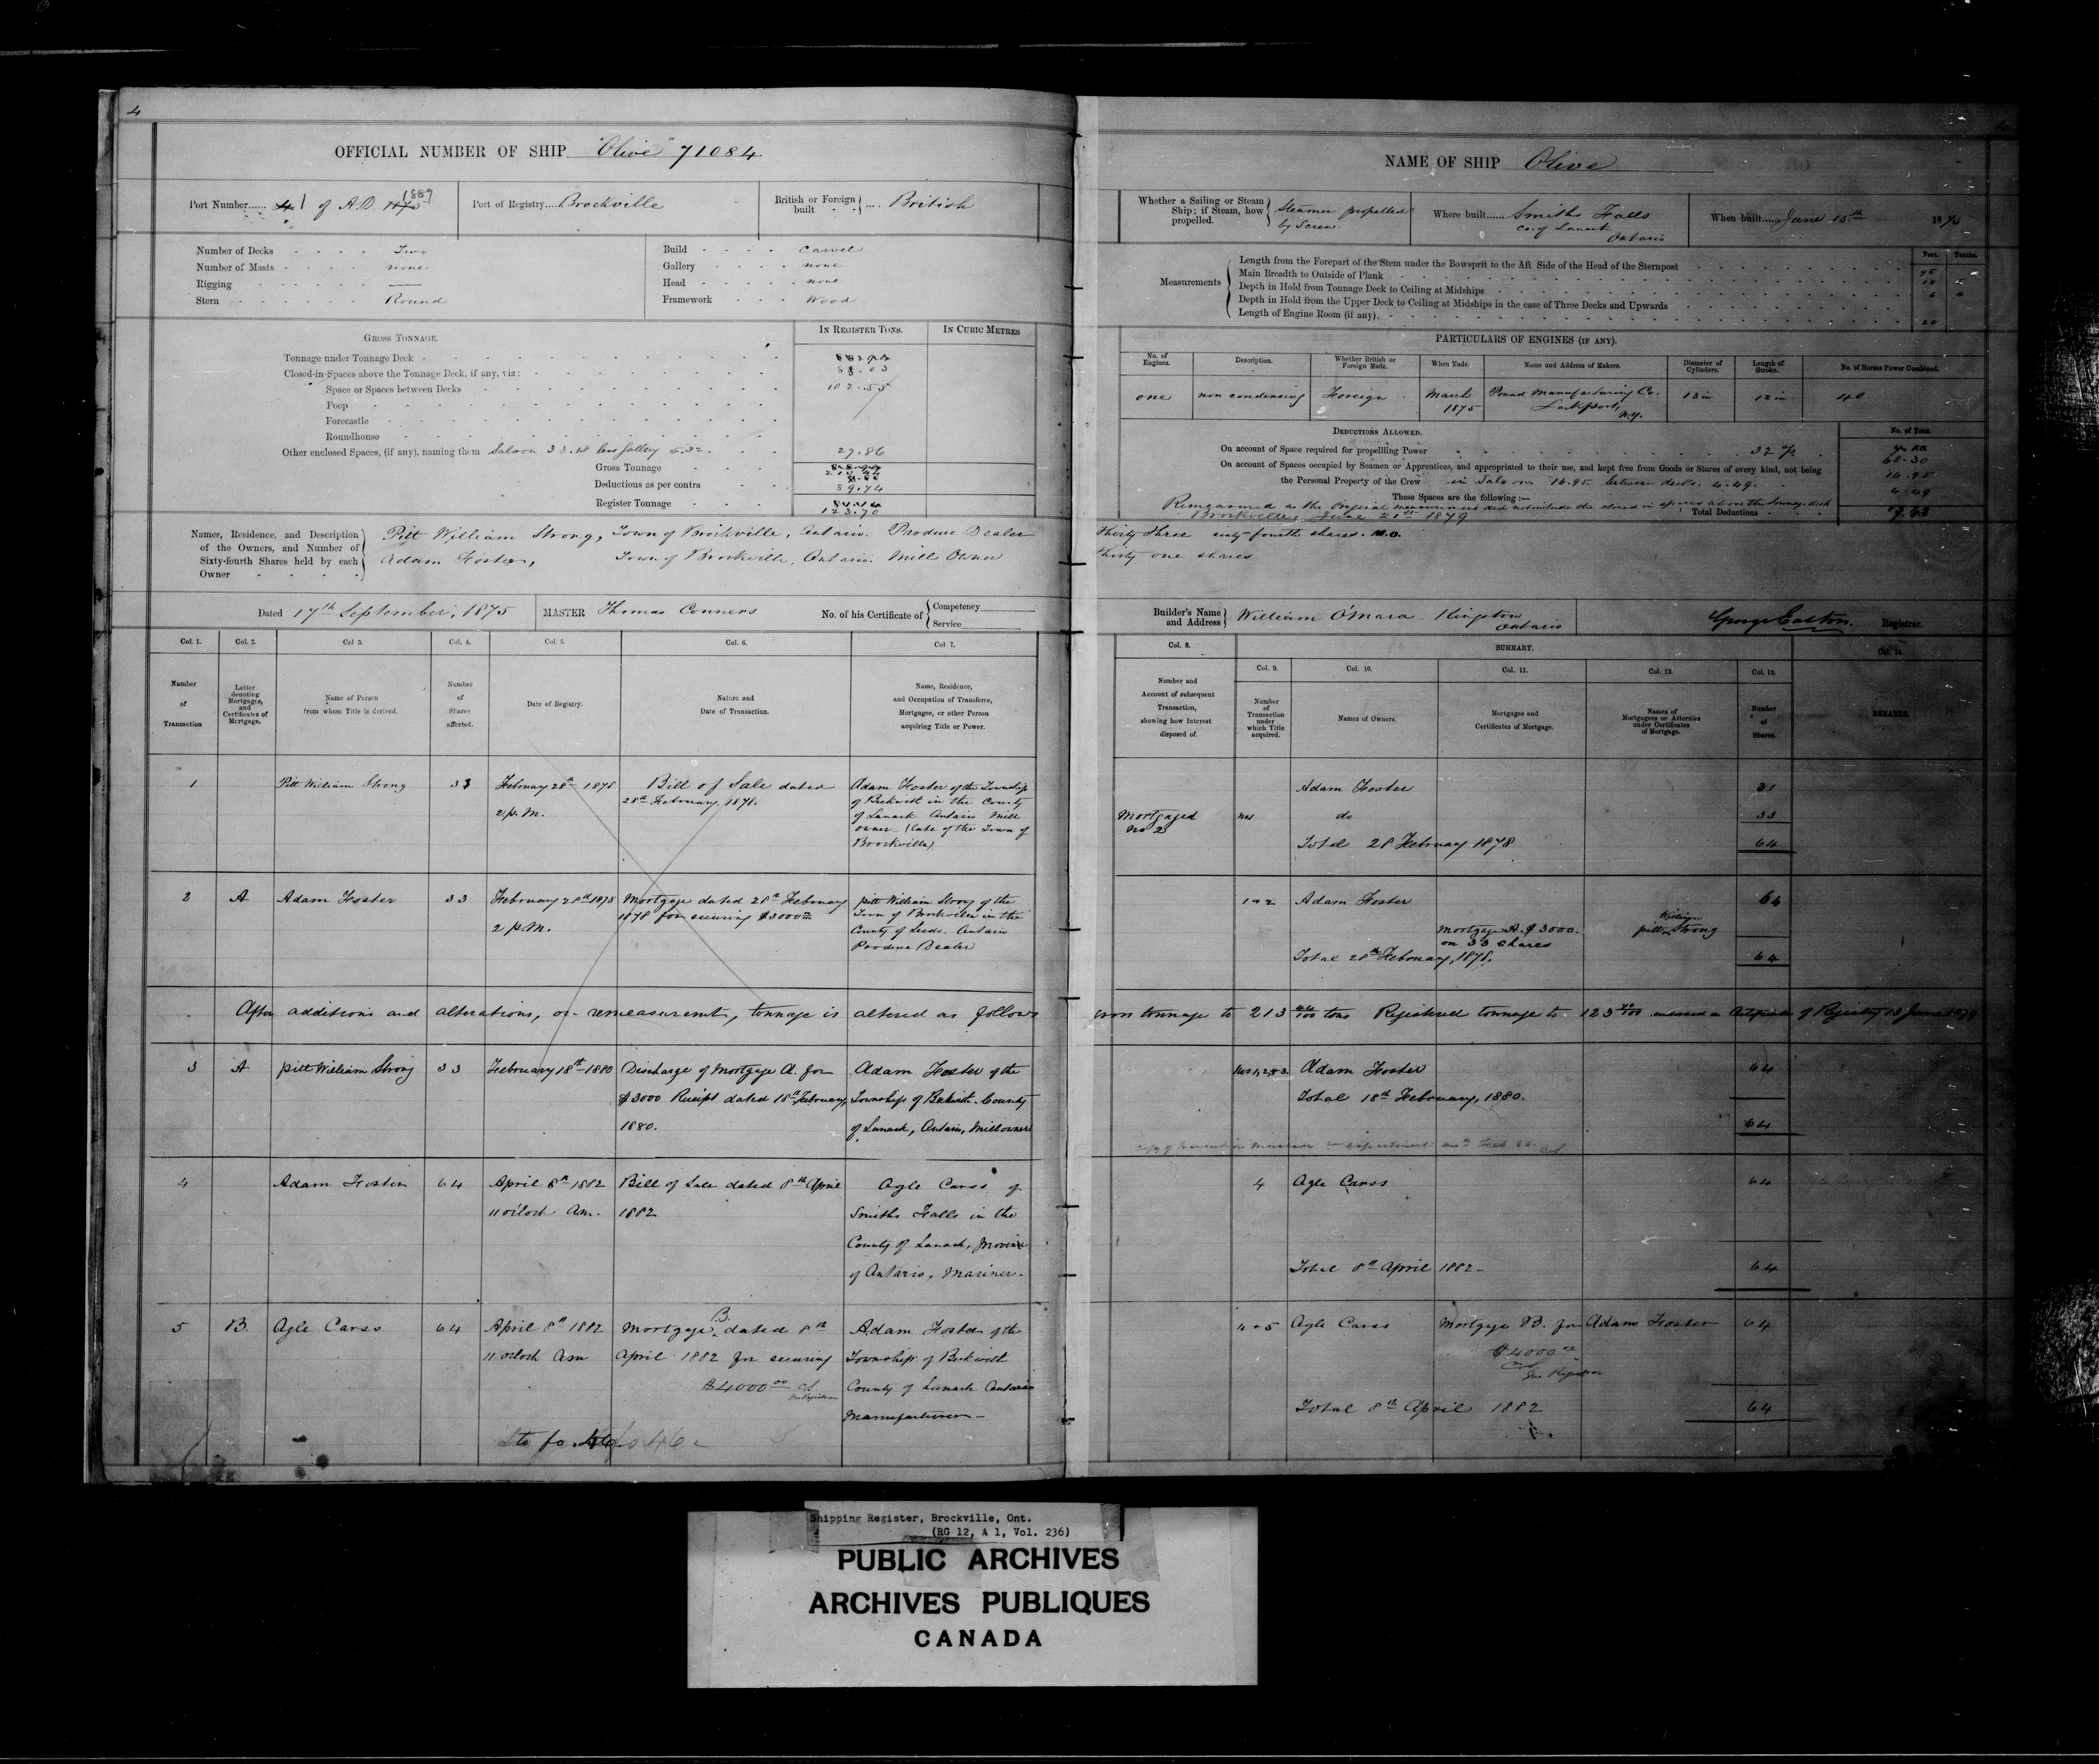 4
OFFICIAL NUMBER OF SHIP "Olive" 71084
Port Number...... 4 1 of A.D. 1875 1889
Port of Registry.... Brockville
British or Foreign built .... British
Number of Decks Two
Number of Masts none
Rigging —
Stern Round
Build Carvel
Gallery none
Head none
Framework Wood
GROSS TONNAGE.
IN REGISTER TONS.
IN CUBIC METRES
Tonnage under Tonnage Deck
Closed-in-Spaces above the Tonnage Deck, if any, viz: 88.03
Space or Spaces between Decks 102.55
Poop
Forecastle
Roundhouse
Other enclosed Spaces, (if any), naming them Saloon 33.18 less galley 5.32 27.86
Gross Tonnage 213.44
Deductions as per contra 89.74
Register Tonnage 123.70
Names, Residence, and Description of the Owners, and Number of Sixty-fourth Shares held by each Owner
Pitt William Strong, Town of Brockville, Ontario. Produce Dealer
Adam Foster, Town of Brockville, Ontario. Mill Owner
Dated 17th September, 1875 MASTER Thomas Conners No. of his Certificate of Competency Service
Col. 1. Col. 2. Col 3. Col. 4. Col. 5. Col. 6. Col. 7.
Number of Transaction
Letter denoting Mortgages, and Certificates of Mortgage.
Name of Person from whom Title is derived.
Number of Shares affected.
Date of Registry.
Nature and Date of Transaction.
Name, Residence, and Occupation of Transferee, Mortgagee, or other Person acquiring Title or Power.
1 Pitt William Strong 33 February 28th 1878 2 p.M. Bill of Sale dated 28th February, 1878.
Adam Foster of the Township
of Beckwith in the County
of Lanark Ontario Mill
owner (late of the Town of
Brockville)
2 A Adam Foster 33 February 28th 1878 2 p.M. Mortgage dated 28th February 1878 for securing $3000
Pitt William Strong of the
Town of Brockville in the
County of Leeds. Ontario
Produce Dealer
After additions and alterations, or remeasurement, tonnage is altered as follows
3 A Pitt William Strong 33 February 18th 1880 Discharge of Mortgage A. for $3000 Receipt dated 18th February, 1880.
Adam Foster of the
Township of Beckwith County
of Lanark, Ontario, Mill owner
4 Adam Foster 64 April 8th 1882 11 o'clock Am. Bill of Sale dated 8th April 1882
Agle Carss of
Smiths Falls in the
County of Lanark, Province
of Ontario, Mariner.
5 B. Agle Carss 64 April 8th 1882 11 o'clock Am Mortgage B. dated 8th April 1882 for securing $4000.00
Adam Foster of the
Township of Beckwith
County of Lanark Ontario
Manufacturer
to fo. 46
NAME OF SHIP Olive
Whether a Sailing or Steam Ship; if Steam, how propelled. Steamer propelled by Screw
Where built...... Smiths Falls Co. of Lanark Ontario
When built.... June 15th 1875
Measurements
Feet. Tenths.
Length from the Forepart of the Stem under the Bowsprit to the Aft Side of the Head of the Sternpost
Main Breadth to Outside of Plank
Depth in Hold from Tonnage Deck to Ceiling at Midships
Depth in Hold from the Upper Deck to Ceiling at Midships in the case of Three Decks and Upwards
Length of Engine Room (if any). 20
PARTICULARS OF ENGINES (IF ANY).
No. of Engines. Description. Whether British or Foreign Made. When Made. Name and Address of Makers. Diameter of Cylinders. Length of Stroke. No. of Horses Power Combined.
one non condensing Foreign March 1875 Pound Manufacturing Co. Lockport, N.Y. 13 in 12 in 40
DEDUCTIONS ALLOWED.
No. of Tons.
On account of Space required for propelling Power 32 % 68.30
On account of Spaces occupied by Seamen or Apprentices, and appropriated to their use, and kept free from Goods or Stores of every kind, not being
the Personal Property of the Crew in Saloon 16.95 between decks 4.49. 16.95
4.49
These Spaces are the following:—
Remeasured as the Original measurement did not include the closed in spaces above the tonnage deck
Brockville, June 21st 1879
Total Deductions
Thirty three sixty-fourth shares.
Thirty one shares
Builder's Name and Address William O'Mara Kingston Ontario
George Easton. Registrar.
Col. 8. SUMMARY. Col. 14.
Col. 9. Col. 10. Col. 11. Col. 12. Col. 13.
Number and Account of subsequent Transaction, showing how Interest disposed of.
Number of Transaction under which Title acquired.
Names of Owners.
Mortgages and Certificates of Mortgage.
Names of Mortgagees or Attornies under Certificates of Mortgage.
Number of Shares.
REMARKS.
Adam Foster 31
Mortgaged No 2 do 33
Total 28 February 1878 64
1 & 2 Adam Foster 64
Mortgage A. $3000. on 33 shares
Pitt William Strong
Total 28th February, 1878. 64
gross tonnage to 213 44/100 tons Registered tonnage to 123 70/100 endorsed on Certificate of Registry 13 June 1879
Nos 1, 2, & 3. Adam Foster 64
Total 18th February, 1880.
64
4 Agle Carss 64
Total 8th April 1882 64
4 & 5 Agle Carss Mortgage B. for $4000.00 Adam Foster 64
Total 8th April 1882 64
Shipping Register, Brockville, Ont.
(RG 12, A 1, Vol. 236)
PUBLIC ARCHIVES
ARCHIVES PUBLIQUES
CANADA